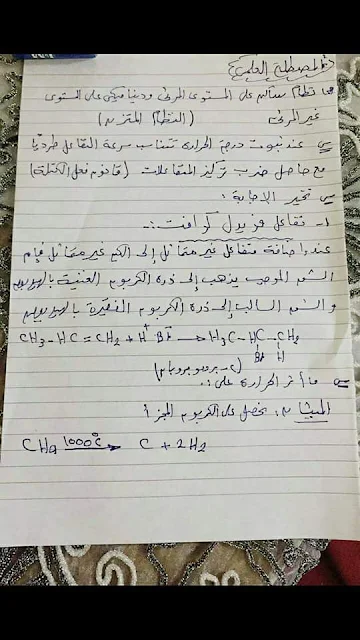 المصطلح العلمي
هو نظام ساكن على المستوى المرئي وديناميكي على المستوى
غير المرئي (النظام المتزن)
س/ عند ثبوت درجة الحرارة تتناسب سرعة التفاعل طرديا
مع حاصل ضرب تركيز المتفاعلات (قانون فعل الكتلة)
س/ تخير الاجابة :
١- تفاعل
عند اضافة متفاعل غير متماثل إلى الكين غير متماثل فإن
الشق الموجب يذهب إلى ذرة الكربون الغنية بالهيدروجين
والشق السالب إلى ذرة الكربون الفقيرة بالهيدروجين
CH3-HC=CH2 + H+ Br- → H3C-HC-CH2
Br H
(٢- برومو بروبان)
س/ ما أثر الحرارة على :
الميثان : نحصل على الكربون المجزأ
CH4 1000°C → C + 2H2